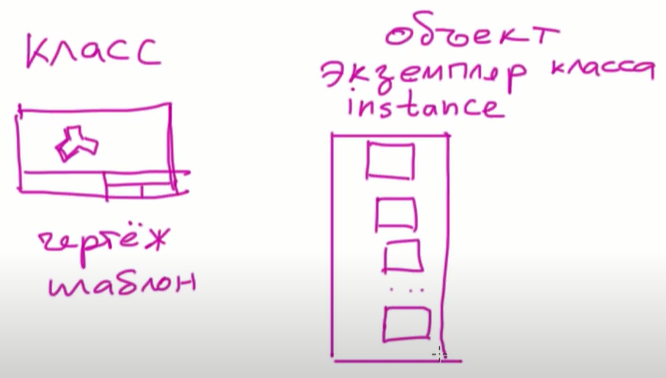 класс
чертёж
шаблон
объект
экземпляр класса
instance